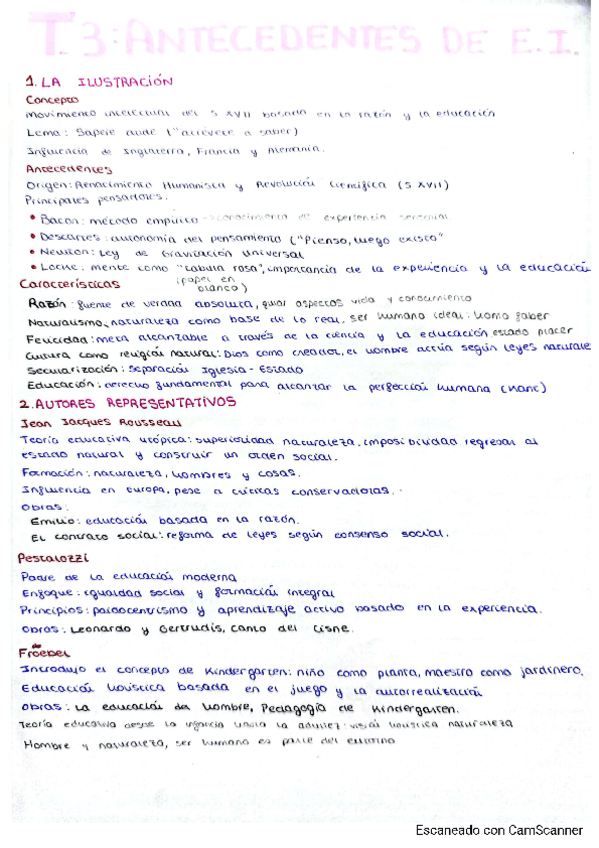 T.3: ANTECEDENTES DE E.I.
1. LA ILUSTRACIÓN
Concepto
Movimiento intelectual del S XVII basado en la razón y la educación
Lema: Sapere aude ("atrévete a saber)
Influencia de Inglaterra, Francia y Alemania.
Antecedentes
Origen: Renacimiento Humanista y Revolución Científica (S XVII)
Principales pensadores.
• Bacon: método empírico - conocimiento de experiencia sensorial
• Descartes: autonomía del pensamiento ("Pienso, luego existo"
• Newton: Ley de Gravitación Universal
• Locke: mente como "tabula rosa", importancia de la experiencia y la educación
(papel en blanco)
Características
Razón: fuente de verdad absoluta, guiar aspectos vida y conocimiento
Naturalismo, naturaleza como base de lo real, ser humano ideal: Homo faber
Felicidad: meta alcanzable a través de la ciencia y la educación estado placer
Cultura como religión natural: Dios como creador, el hombre actúa según leyes naturales
Secularización: Separación Iglesia - Estado
Educación: derecho fundamental para alcanzar la perfección humana (Kant)
2. AUTORES REPRESENTATIVOS
Jean Jacques Rousseau
Teoría educativa utópica: superioridad naturaleza, imposibilidad regresar al
estado natural y construir un orden social.
Formación: naturaleza, hombres y cosas.
Influencia en Europa, pese a críticas conservadoras.
Obras:
Emilio: educación basada en la razón.
El contrato social: reforma de leyes según consenso social.
Pestalozzi
Padre de la educación moderna
Enfoque: igualdad social y formación integral
Principios: paidocentrismo y aprendizaje activo basado en la experiencia.
Obras: Leonardo y Gertrudis, Canto del Cisne.
Fröebel
Introdujo el concepto de Kindergarten: niño como planta, maestro como jardinero.
Educación holística basada en el juego y la autorrealización
Obras: La educación del hombre, Pedagogía de Kindergarten.
Teoría educativa desde la infancia hasta la adultez: visión holística naturaleza
Hombre y naturaleza, ser humano es parte del entorno
Escaneado con CamScanner